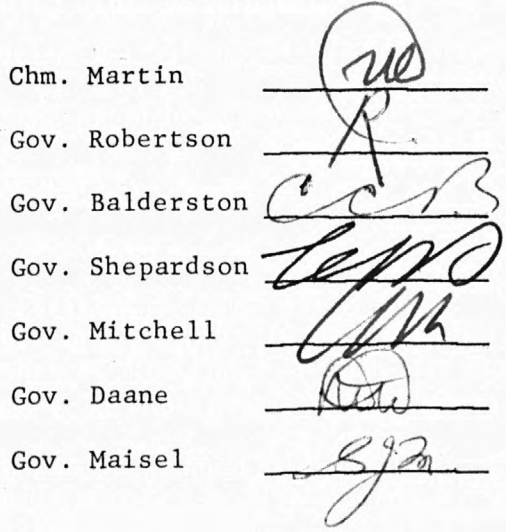 Chm. Martin
Gov. Robertson R
Gov. Balderston CCB
Gov. Shepardson
Gov. Mitchell
Gov. Daane
Gov. Maisel SJM